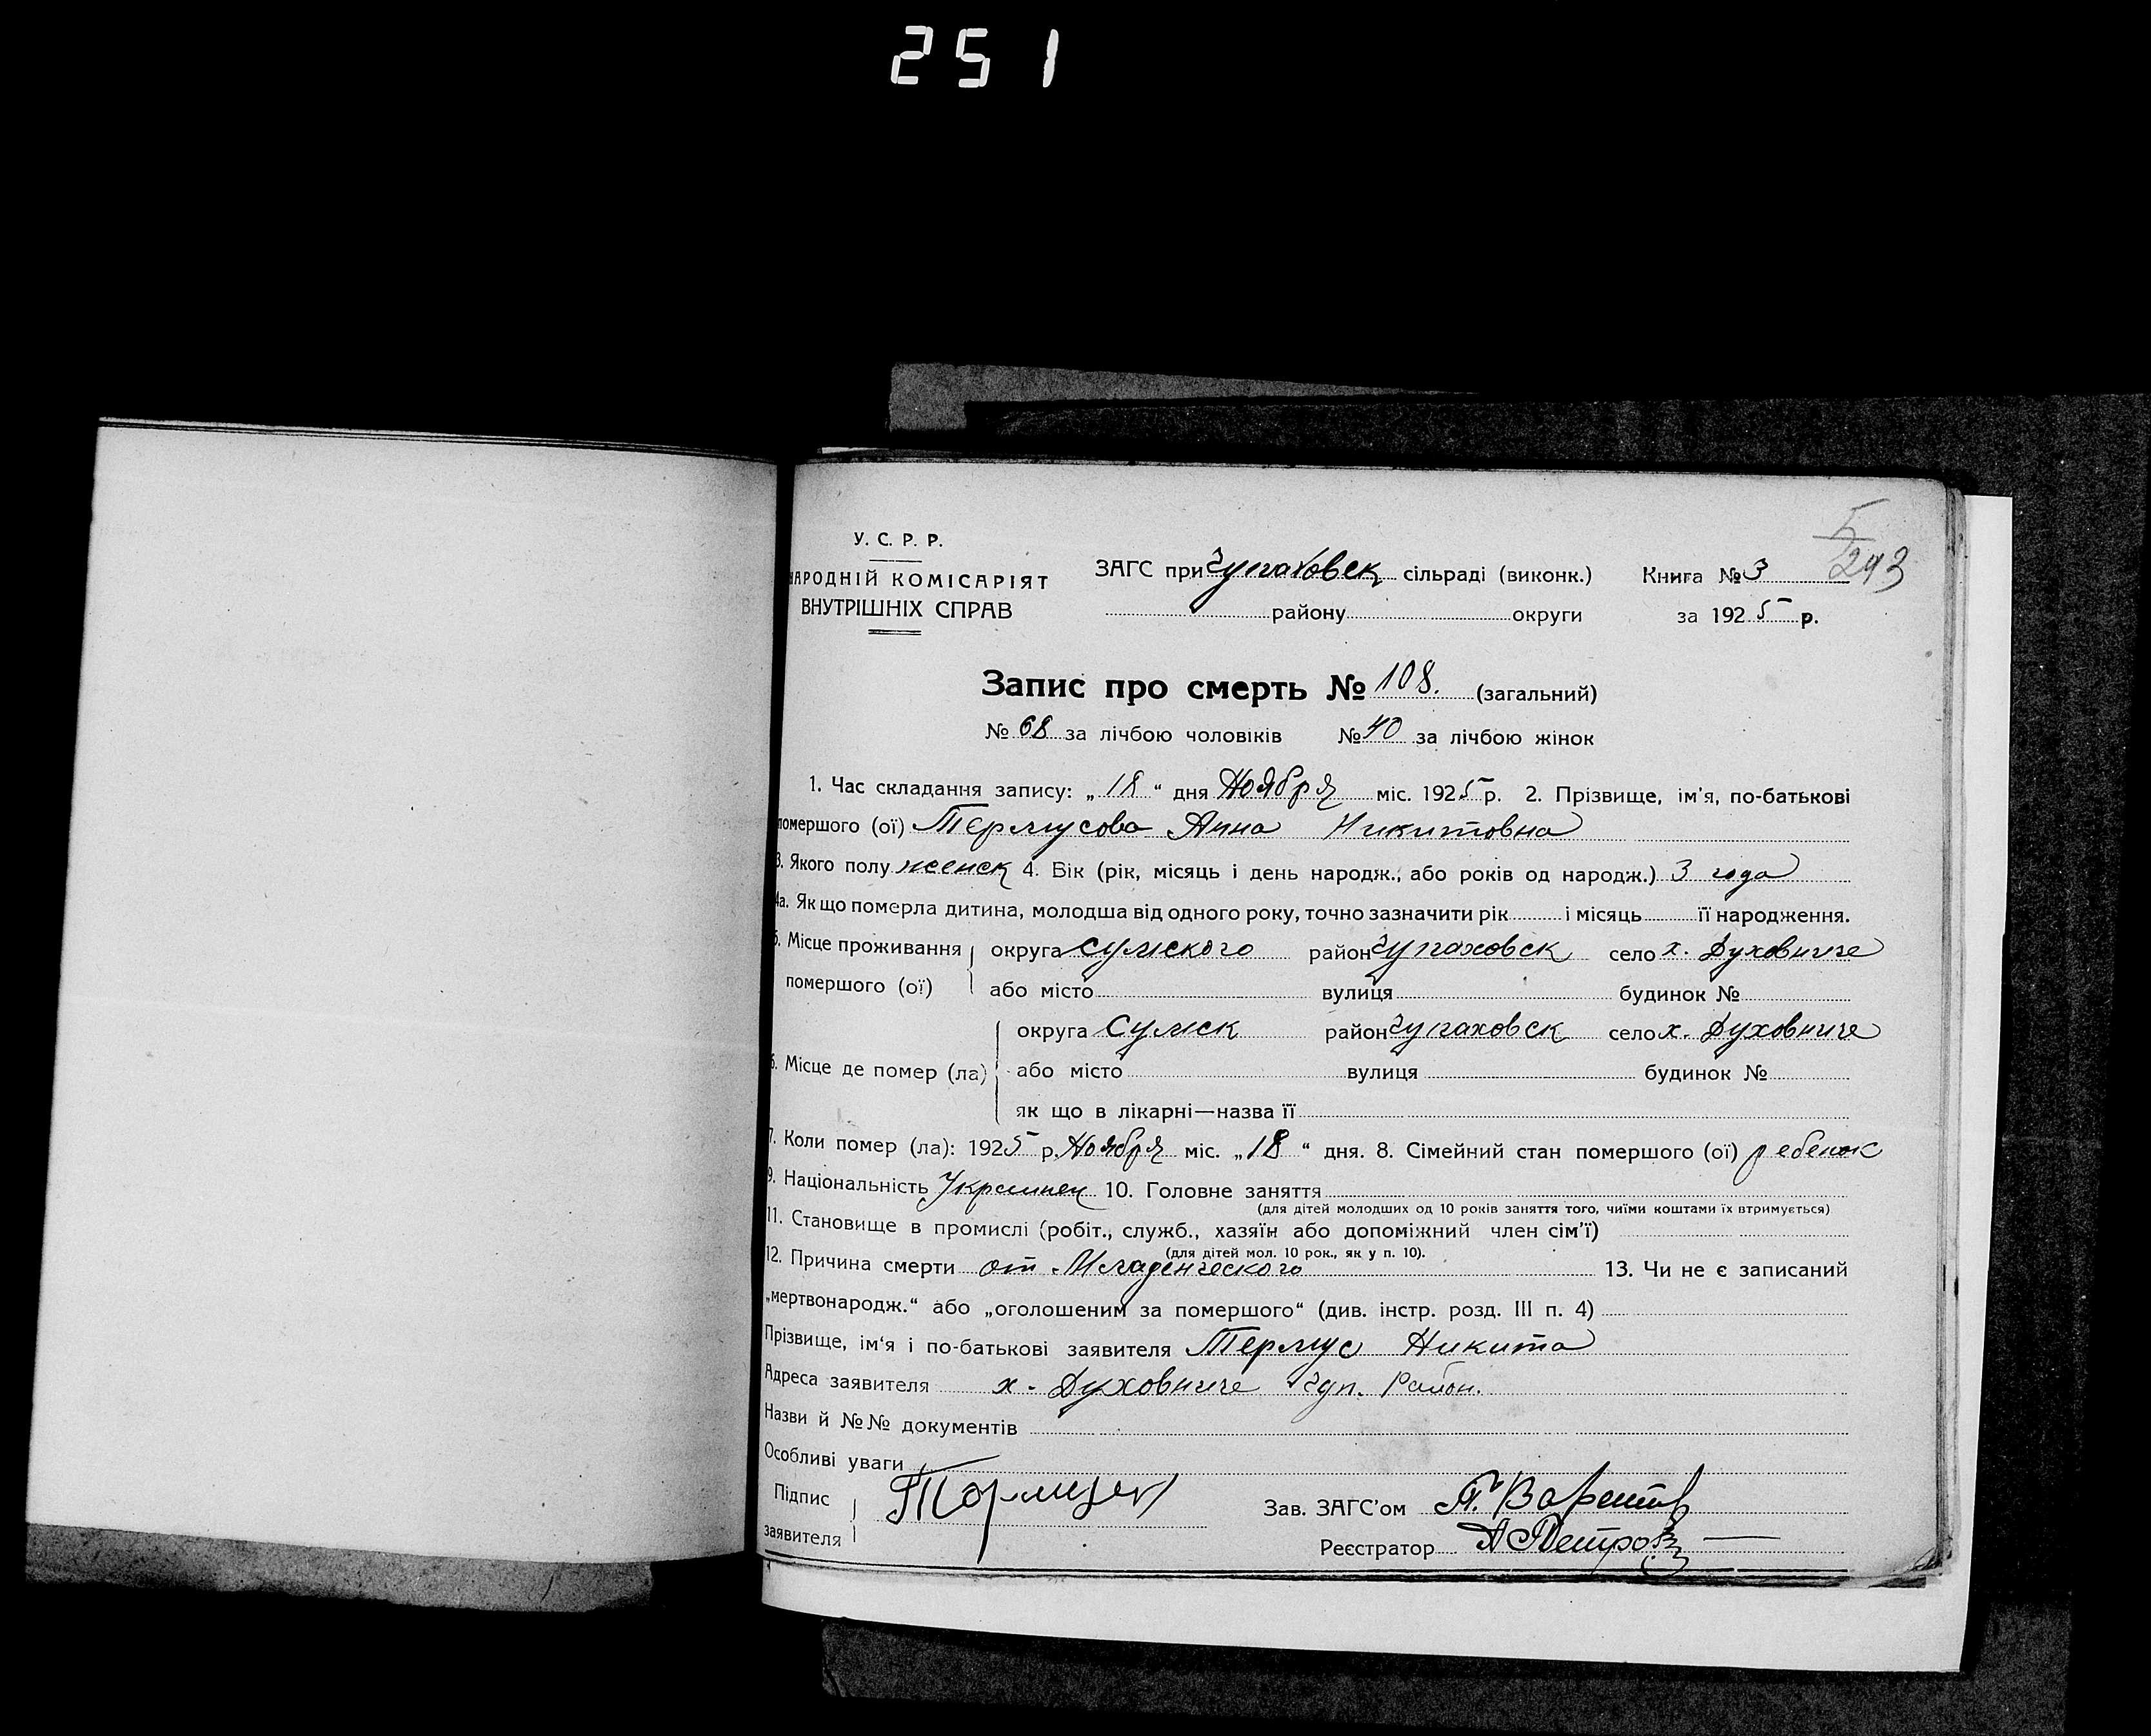 251
5
293
У. С. Р. Р.
НАРОДНІЙ КОМІСАРІЯТ
ВНУТРІШНІХ СПРАВ
ЗАГС при Чупаховск сільраді (виконк.) Книга № 3
району округи за 1925 р.
Запис про смерть № 108. (загальний)
№ 68 за лічбою чоловіків № 40 за лічбою жінок
1. Час складання запису: „18“ дня Ноября міс. 1925 р. 2. Прізвище, ім'я, по-батькові
помершого (ої) Термусова Анна Никитовна
3. Якого полу женск 4. Вік (рік, місяць і день народж., або років од народж.) 3 года
4а. Як що померла дитина, молодша від одного року, точно зазначити рік і місяць її народження.
5. Місце проживання округа Сумского район Чупаховск село х. Духовниче
помершого (ої) або місто вулиця будинок №
округа Сумск район Чупаховск село х. Духовниче
6. Місце де помер (ла) або місто вулиця будинок №
як що в лікарні—назва її
7. Коли помер (ла): 1925 р. Ноября міс. „18“ дня. 8. Сімейний стан помершого (ої) ребенок
9. Національність Украинец 10. Головне заняття
(для дітей молодших од 10 років заняття того, чиїми коштами їх втримується)
11. Становище в промислі (робіт., служб., хазяїн або допоміжний член сім'ї)
(для дітей мол. 10 рок., як у п. 10).
12. Причина смерти от Младенческого 13. Чи не є записаний
„мертвонародж.“ або „оголошеним за помершого“ (див. інстр. розд. III п. 4)
Прізвище, ім'я і по-батькові заявителя Термус Никита
Адреса заявителя х. Духовниче Чуп. Район.
Назви й №№ документів
Особливі уваги
Підпис
заявителя
Зав. ЗАГС'ом
Реєстратор А Петров